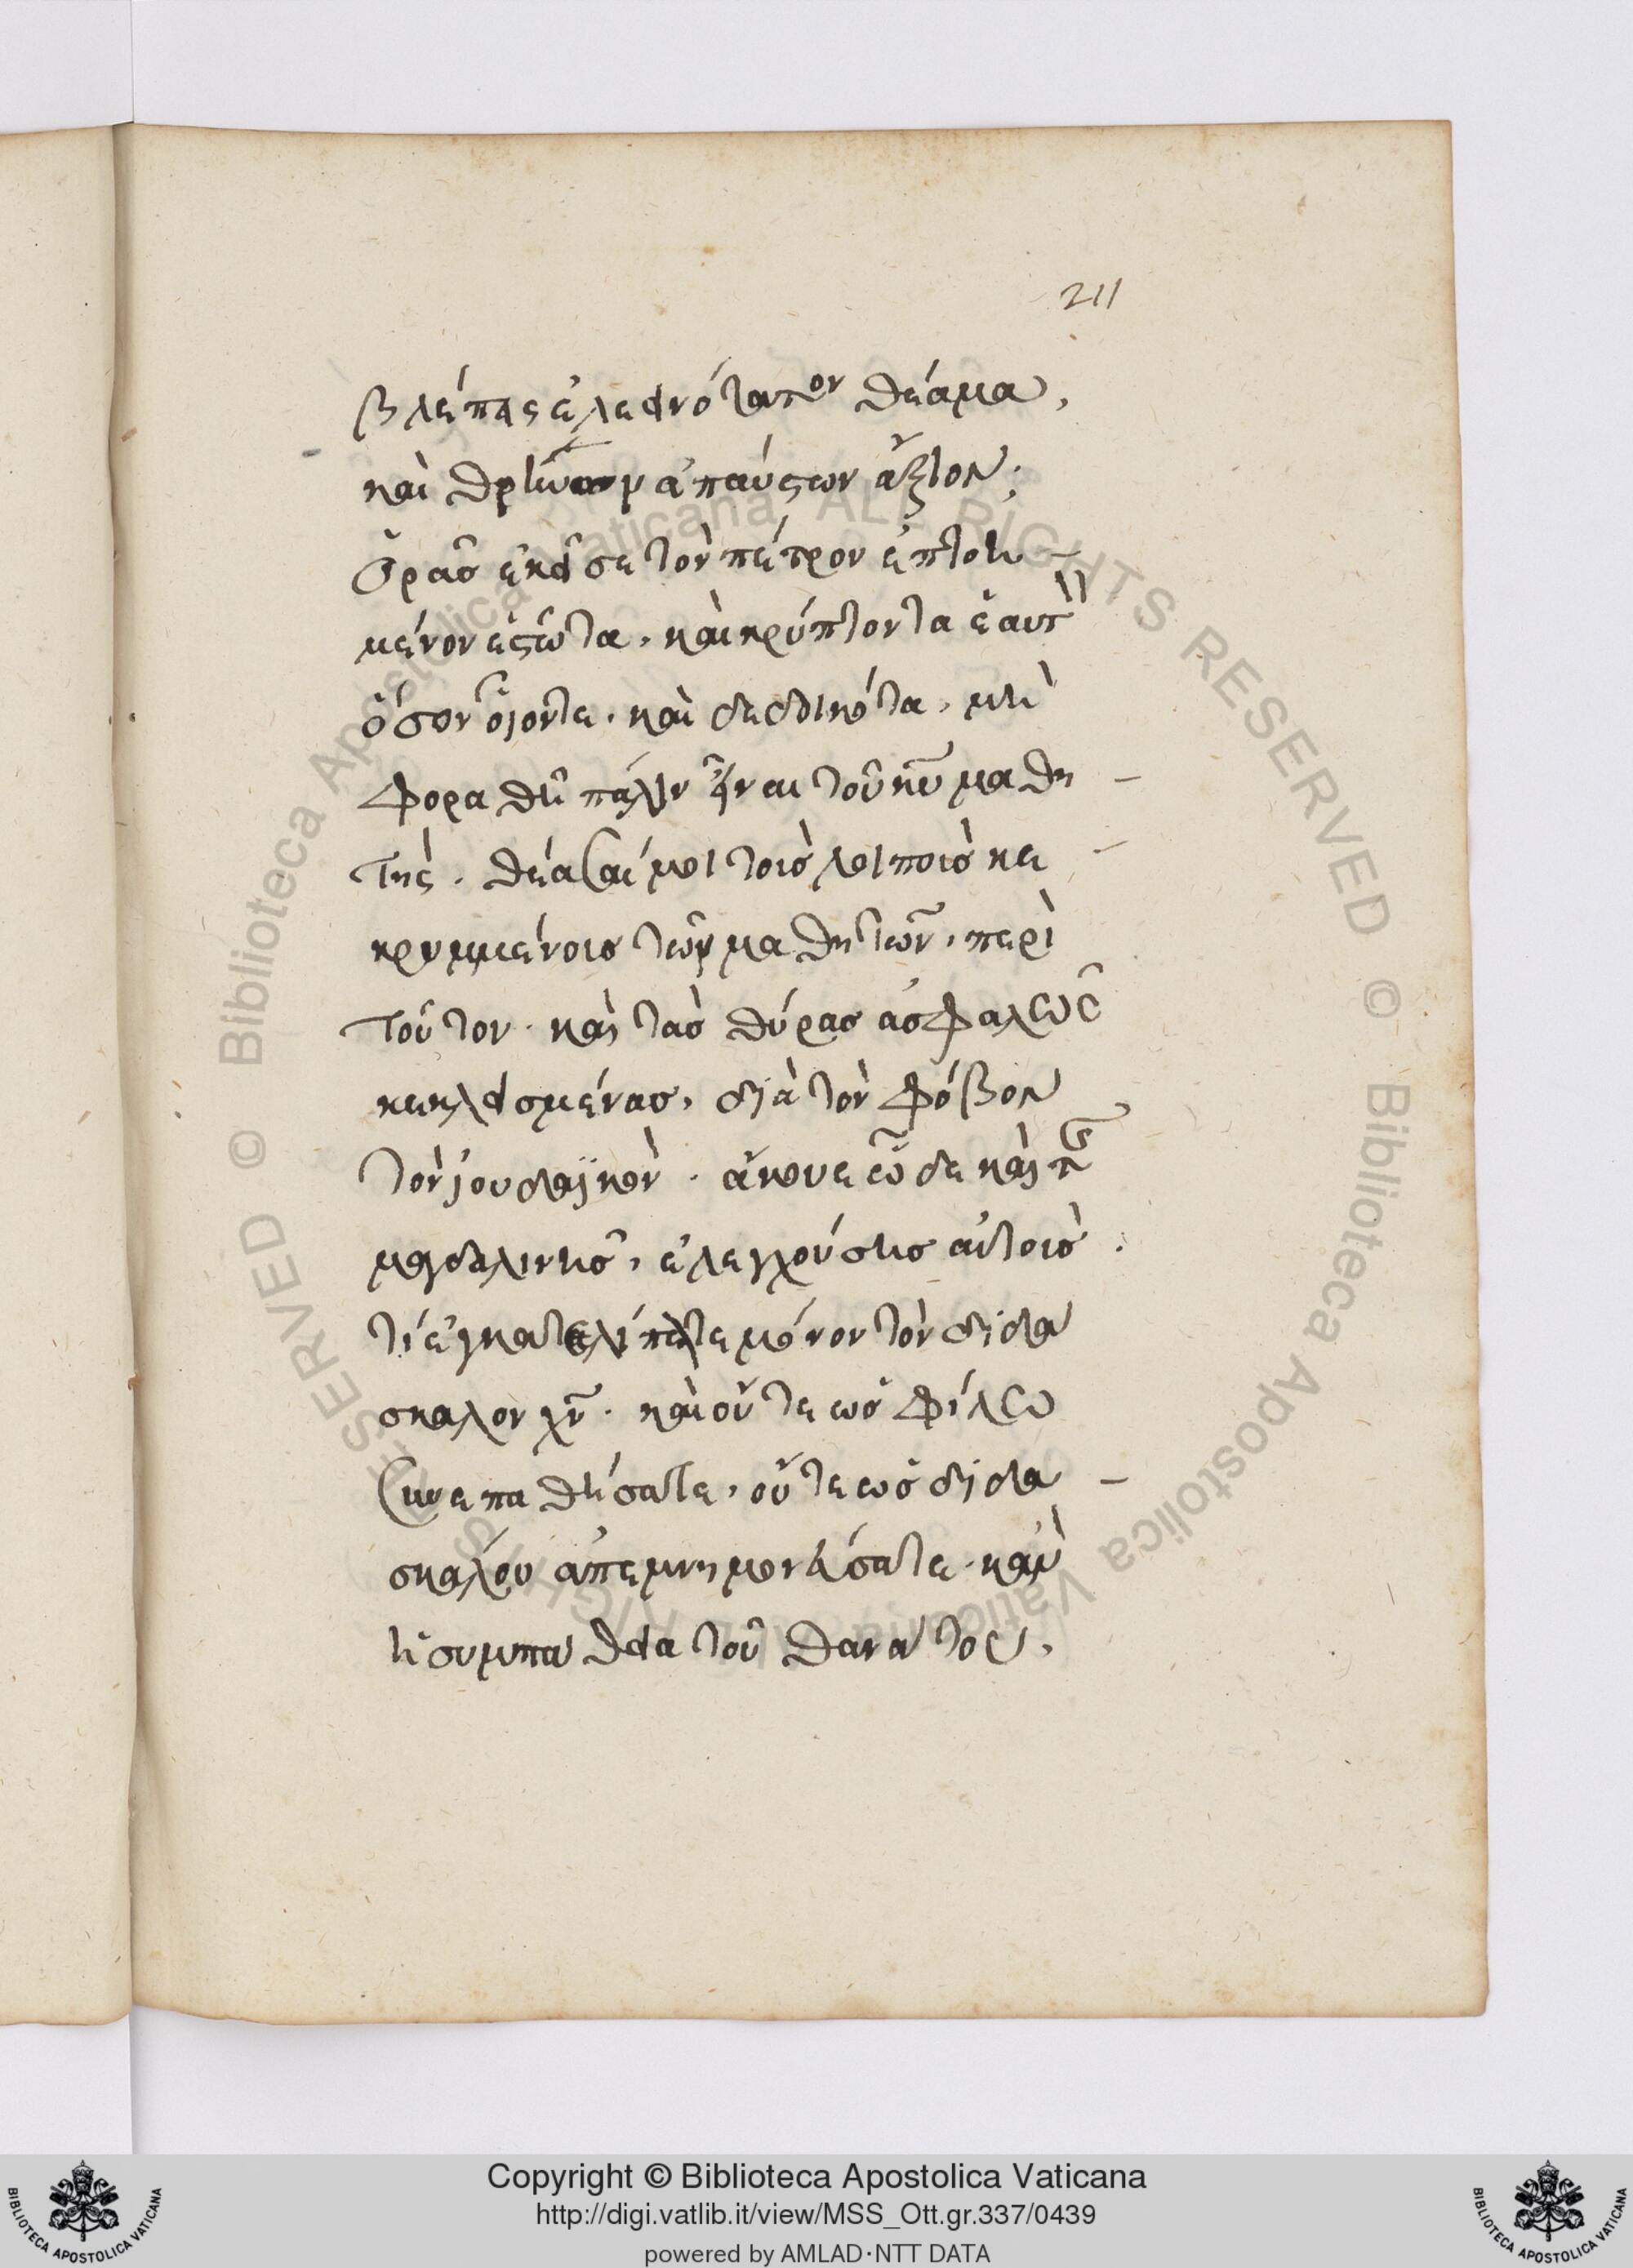 211
βλέπεις ἐλεεινότατον θέαμα,
καὶ θρήνων ἀπαύστων ἄξιον.
Ὁρᾶς ἐκεῖσε τὸν πέτρον ἐπτοη
μένον ἑστῶτα. καὶ κρύπτοντα ἑαυτὸν
ὅσον οἷόντε. καὶ δεδικότα. μὴ
φοραθῇ πάλιν εἶναι τοῦ κυ μαθη
τής. θέασαί μοι τοὺς λοιποὺς κε
κρυμμένους τῶν μαθητῶν, περὶ
τοῦτον. καὶ τὰς θύρας ἀσφαλῶς
κεκλεισμένας, διὰ τὸν φόβον
τὸν ἰουδαϊκὸν. ἄκουε ὧδε καὶ τῆς
μαγδαλινῆς, ἐλεγχούσης αὐτοὺς.
τί ἐγκατελίπετε μόνον τὸν διδα
σκαλον χν. καὶ οὔτε ὡς φίλω
συνεπαθήσατε, οὔτε ὡς διδα
σκάλου ἀπεμνημονεύσατε. κἂν
ἡ συμπαθεια τοῦ θανάτου,
Copyright © Biblioteca Apostolica Vaticana
http://digi.vatlib.it/view/MSS_Ott.gr.337/0439
powered by AMLAD·NTT DATA
BIBLIOTECA APOSTOLICA VATICANA
BIBLIOTECA APOSTOLICA VATICANA
© Biblioteca Apostolica Vaticana ALL RIGHTS RESERVED
© Biblioteca Apostolica Vaticana ALL RIGHTS RESERVED